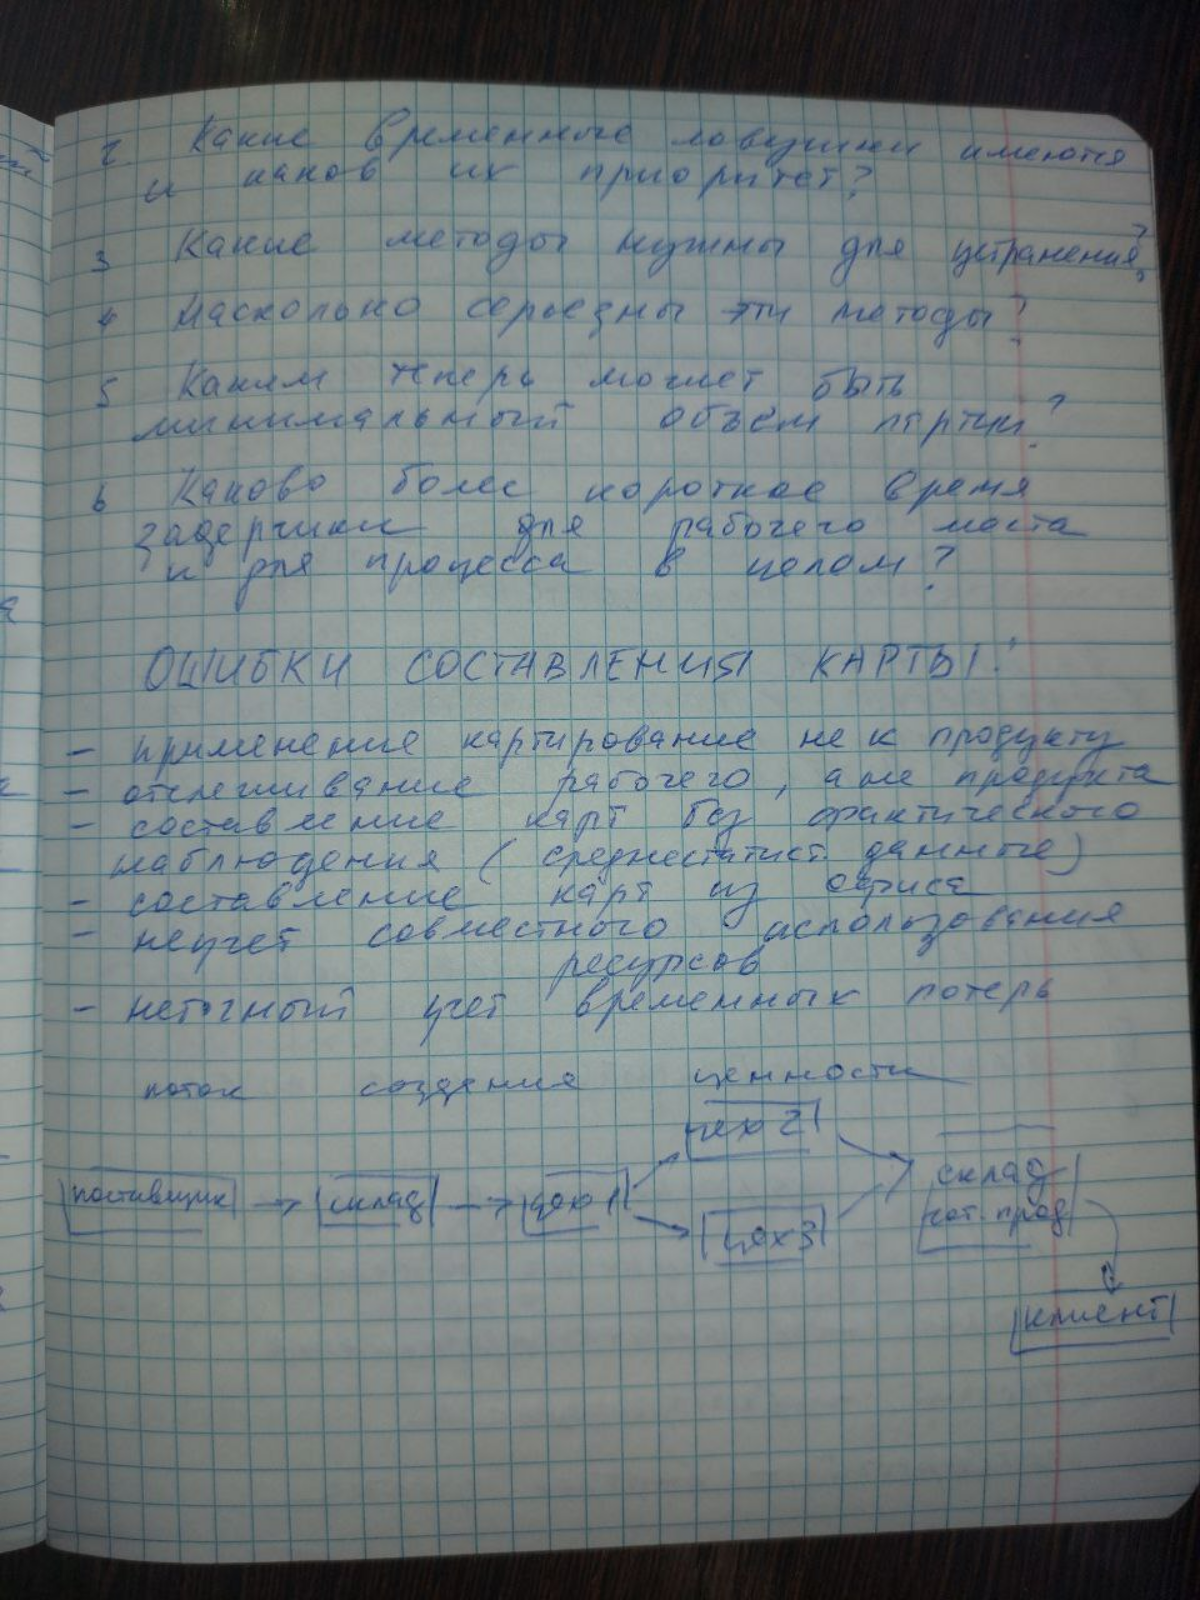 2 Какие временные ловушки имеются
и каков их приоритет?
3 Какие методы нужны для устранения?
4 Насколько серьезны эти методы?
5 Каким теперь может быть
минимальный объем партии?
6 Каково более короткое время
задержки для рабочего места
и для процесса в целом?
ОШИБКИ СОСТАВЛЕНИЯ КАРТЫ!
- применение картирование не к продукту
- отслеживание рабочего, а не продукта
- составление карт без фактического
наблюдения (среднестатист. данные)
- составление карт из офиса
- неучет совместного использования
ресурсов
- неточный учет временных потерь
поток создания ценности
цех 2
поставщик → склад → цех 1
склад
гот. прод
цех 3
клиент